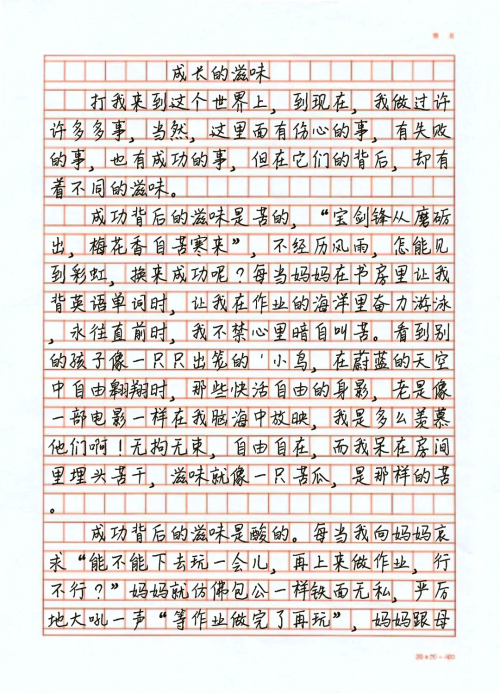 成长的滋味
打我来到这个世界上，到现在，我做过许
许多多事，当然，这里面有伤心的事，有失败
的事，也有成功的事，但在它们的背后，却有
着不同的滋味。
成功背后的滋味是苦的，“宝剑锋从磨砺
出，梅花香自苦寒来”，不经历风雨，怎能见
到彩虹，换来成功呢？每当妈妈在书房里让我
背英语单词时，让我在作业的海洋里奋力游泳
，永往直前时，我不禁心里暗自叫苦。看到别
的孩子像一只只出笼的‘小鸟，在蔚蓝的天空
中自由翱翔时，那些快活自由的身影，老是像
一部电影一样在我脑海中放映，我是多么羡慕
他们啊！无拘无束，自由自在，而我呆在房间
里埋头苦干，滋味就像一只苦瓜，是那样的苦
。
成功背后的滋味是酸的。每当我向妈妈哀
求“能不能下去玩一会儿，再上来做作业，行
不行？”妈妈就仿佛包公一样铁面无私，严厉
地大吼一声“等作业做完了再玩”，妈妈跟母